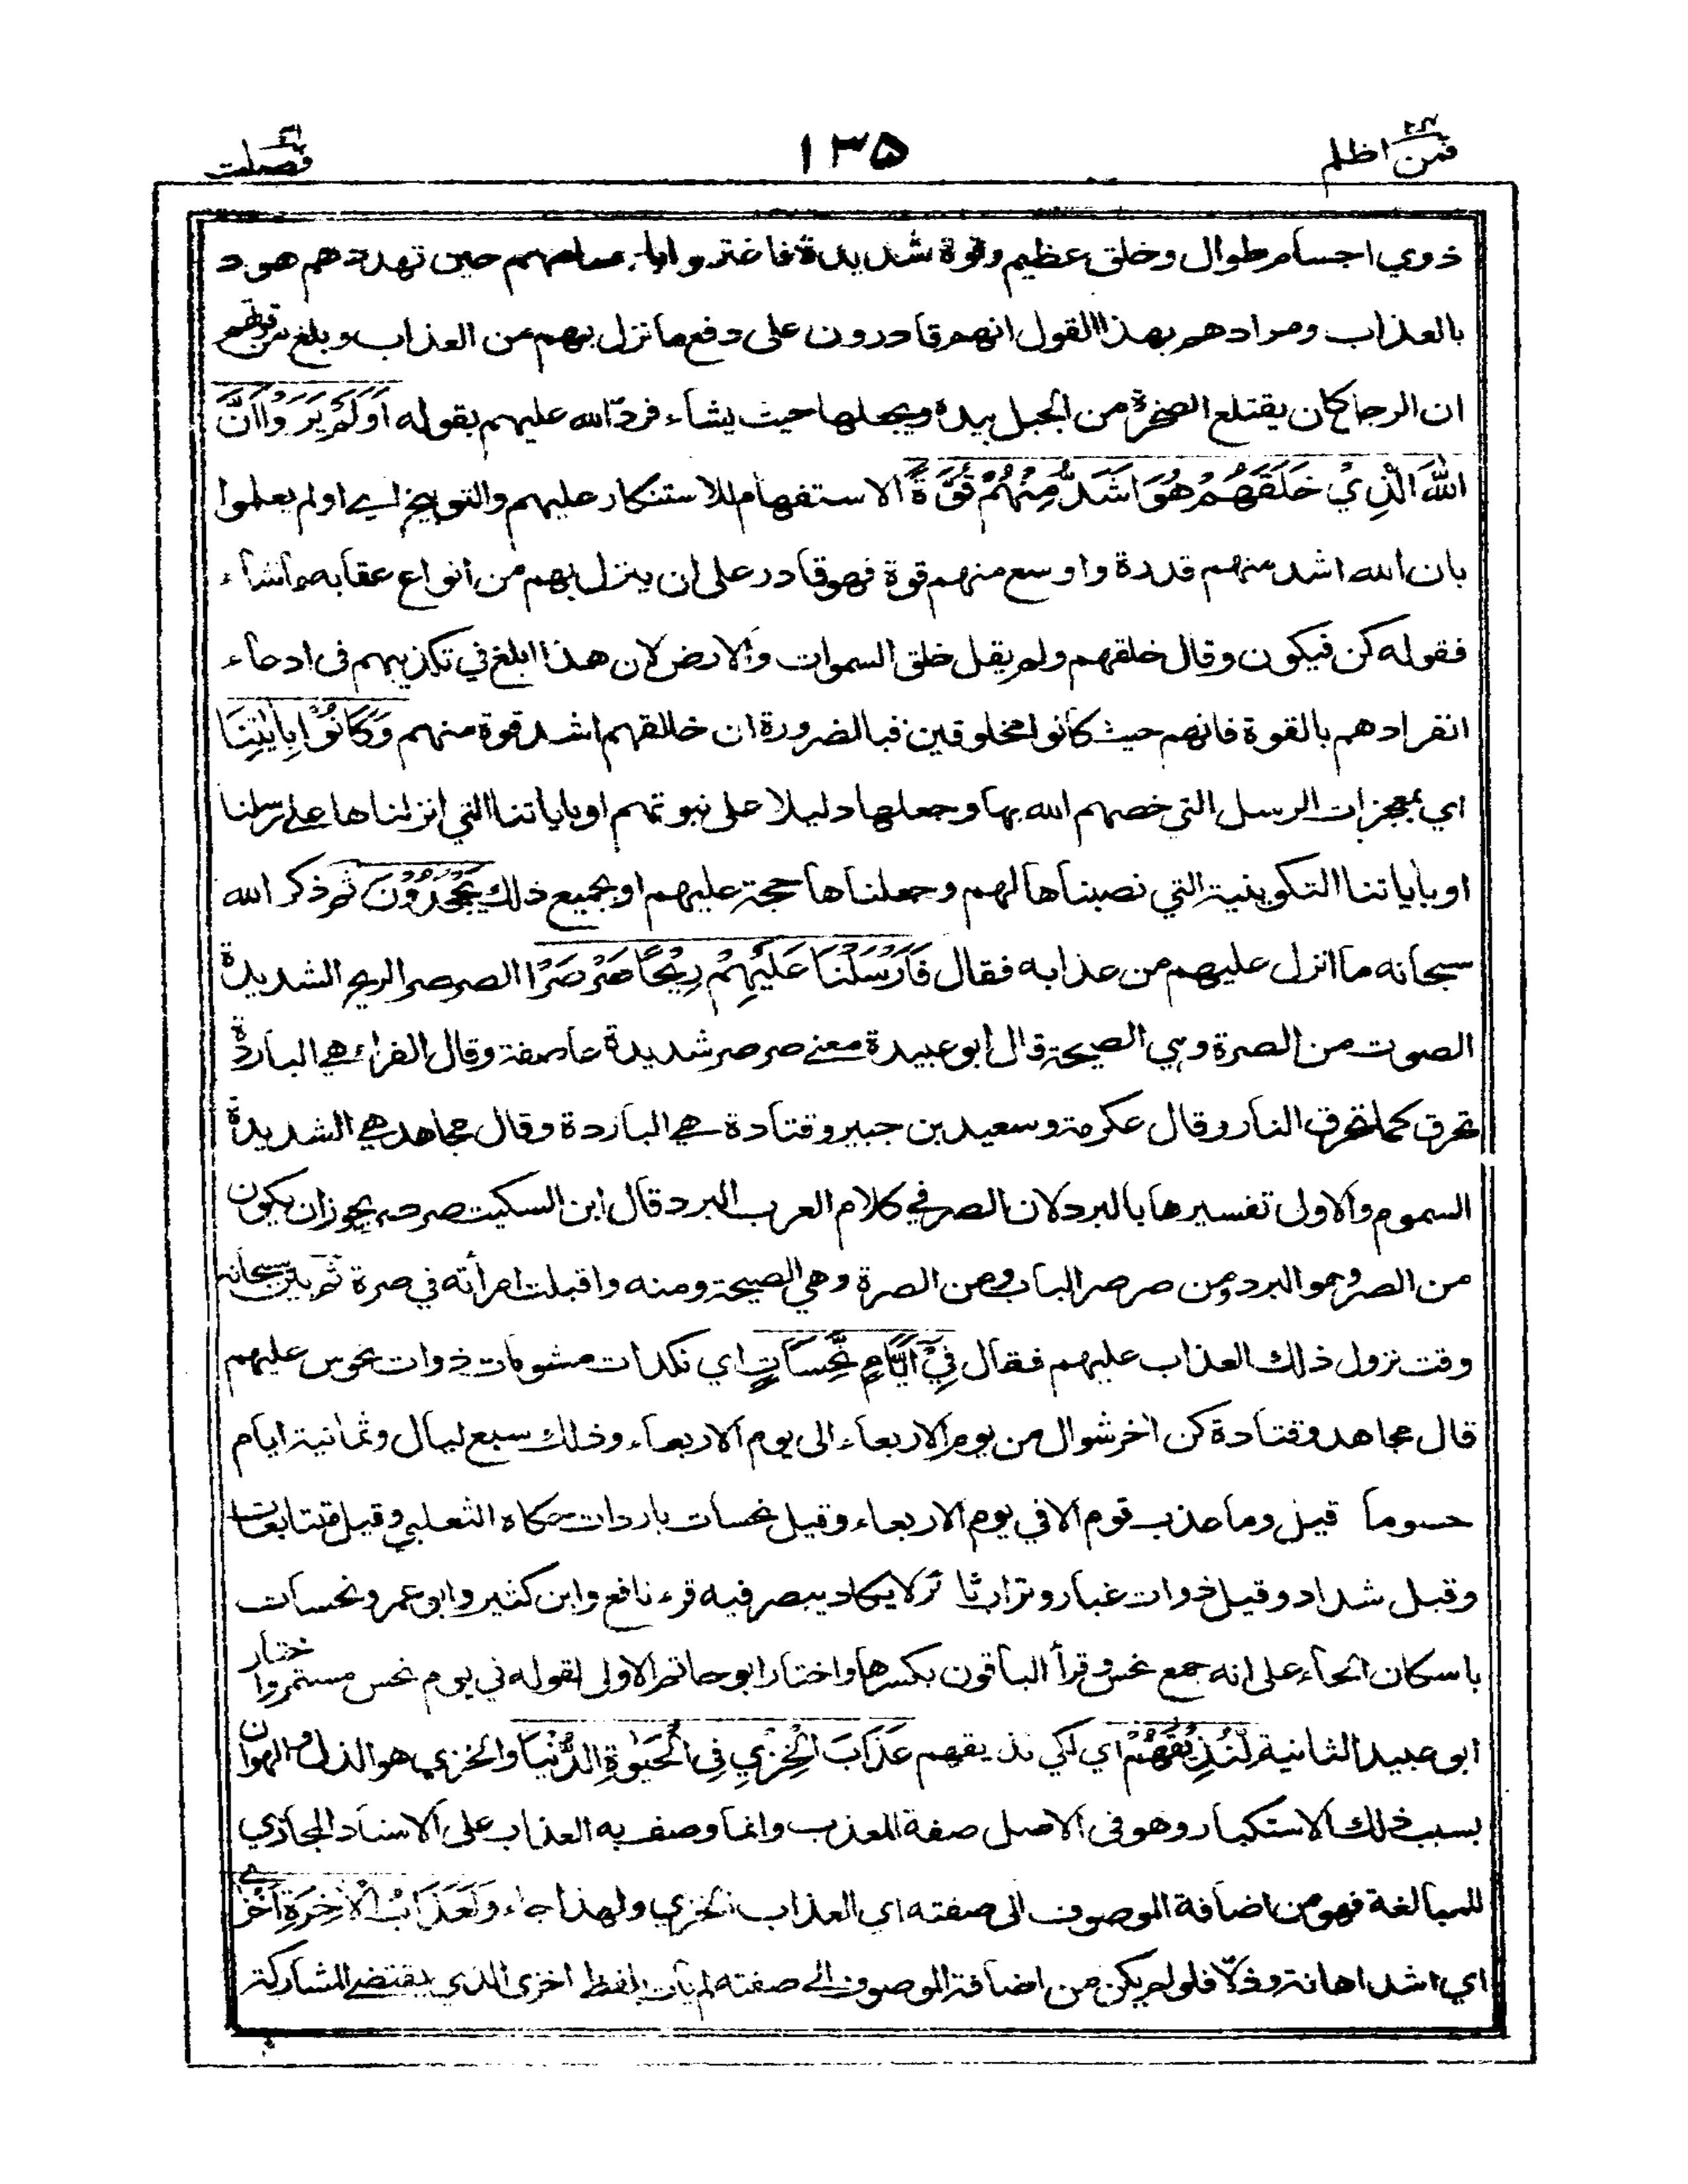 فمن اظلم ١٣٥ فصلت
ذوي اجسام طوال وخلق عظيم وقوة شديدة فاغتروا باجسامهم حين تهددهم هود
بالعذاب ومرادهم بهذا القول انهم قادرون على دفع ما نزل بهم من العذاب وبلغ من قوتهم
ان الرجل كان يقتلع الصخرة من الجبل بيده ويجعلها حيث يشاء فردّ الله عليهم بقوله اَوَلَمْ يَرَوْا اَنَّ
اللّٰهَ الَّذِيْ خَلَقَهُمْ هُوَ اَشَدُّ مِنْهُمْ قُوَّةً الاستفهام للاستنكار عليهم والتوبيخ اي اولم يعلموا
بان الله اشد منهم قدرة واوسع منهم قوة فهو قادر على ان ينزل بهم من انواع عقابه ما شاء
فقوله كن فيكون وقال خلقهم ولم يقل خلق السموات والارض لان هذا ابلغ في تكذيبهم فى ادعاء
انفرادهم بالقوة فانهم حيث كانوا مخلوقين فبالضرورة ان خالقهم اشد قوة منهم وَكَانُوْا بِاٰيٰتِنَا
اي بمعجزات الرسل التي خصهم الله بها وجعلها دليلا على نبوتهم او باياتنا التي انزلناها على رسلنا
او باياتنا التكوينية التي نصبناها لهم وجعلناها حجة عليهم او بجميع ذلك يَجْحَدُوْنَ ثم ذكر الله
سبحانه ما انزل عليهم من عذابه فقال فَاَرْسَلْنَا عَلَيْهِمْ رِيْحًا صَرْصَرًا الصرصر الريح الشديدة
الصوت من الصرة وهي الصيحة قال ابو عبيدة معنى صرصر شديدة عاصفة وقال الفراء هي الباردة
تحرق كما تحرق النار وقال عكرمة وسعيد بن جبير وقتادة هي الباردة وقال مجاهد هي الشديدة
السموم والاولى تفسيرها بالبرد لان الصر في كلام العرب البرد قال ابن السكيت صرصر يجوز ان يكون
من الصر وهو البرد ومن صرصر الباب ومن الصرة وهي الصيحة ومنه واقبلت امرأته في صرة ثم بين سبحانه
وقت نزول ذلك العذاب عليهم فقال فِيْٓ اَيَّامٍ نَّحِسَاتٍ اي نكدات مشومات ذوات نحوس عليهم
قال مجاهد وقتادة كن اخر شوال من يوم الاربعاء الى يوم الاربعاء وذلك سبع ليال وثمانية ايام
حسوما قيل وما عذب قوم الا في يوم الاربعاء وقيل نحسات باردات حكاه الثعلبي وقيل متتابعات
وقيل شداد وقيل ذوات غبار وتراب ثائر لا يكاد يبصر فيه قرء نافع وابن كثير وابو عمرو نحسات
باسكان الحاء على انه جمع نحس وقرأ الباقون بكسرها واختار ابو حاتم الاولى لقوله في يوم نحس مستمر واختار
ابو عبيد الثانية لِّنُذِيْقَهُمْ اي لكي نذيقهم عَذَابَ الْخِزْيِ فِى الْحَيٰوةِ الدُّنْيَا والخزي هو الذل والهوان
بسبب ذلك الاستكبار وهو فى الاصل صفة المعذب وانما وصف به العذاب على الاسناد المجازي
للمبالغة فهو من اضافة الموصوف الى صفته اي العذاب الخزي ولهذا جاء وَلَعَذَابُ الْاٰخِرَةِ اَخْزٰى
اي اشد اهانة وذلّا فلو لم يكن من اضافة الموصوف الى صفته لم يأت بلفظ اخزى الذي يقتضي المشاركة